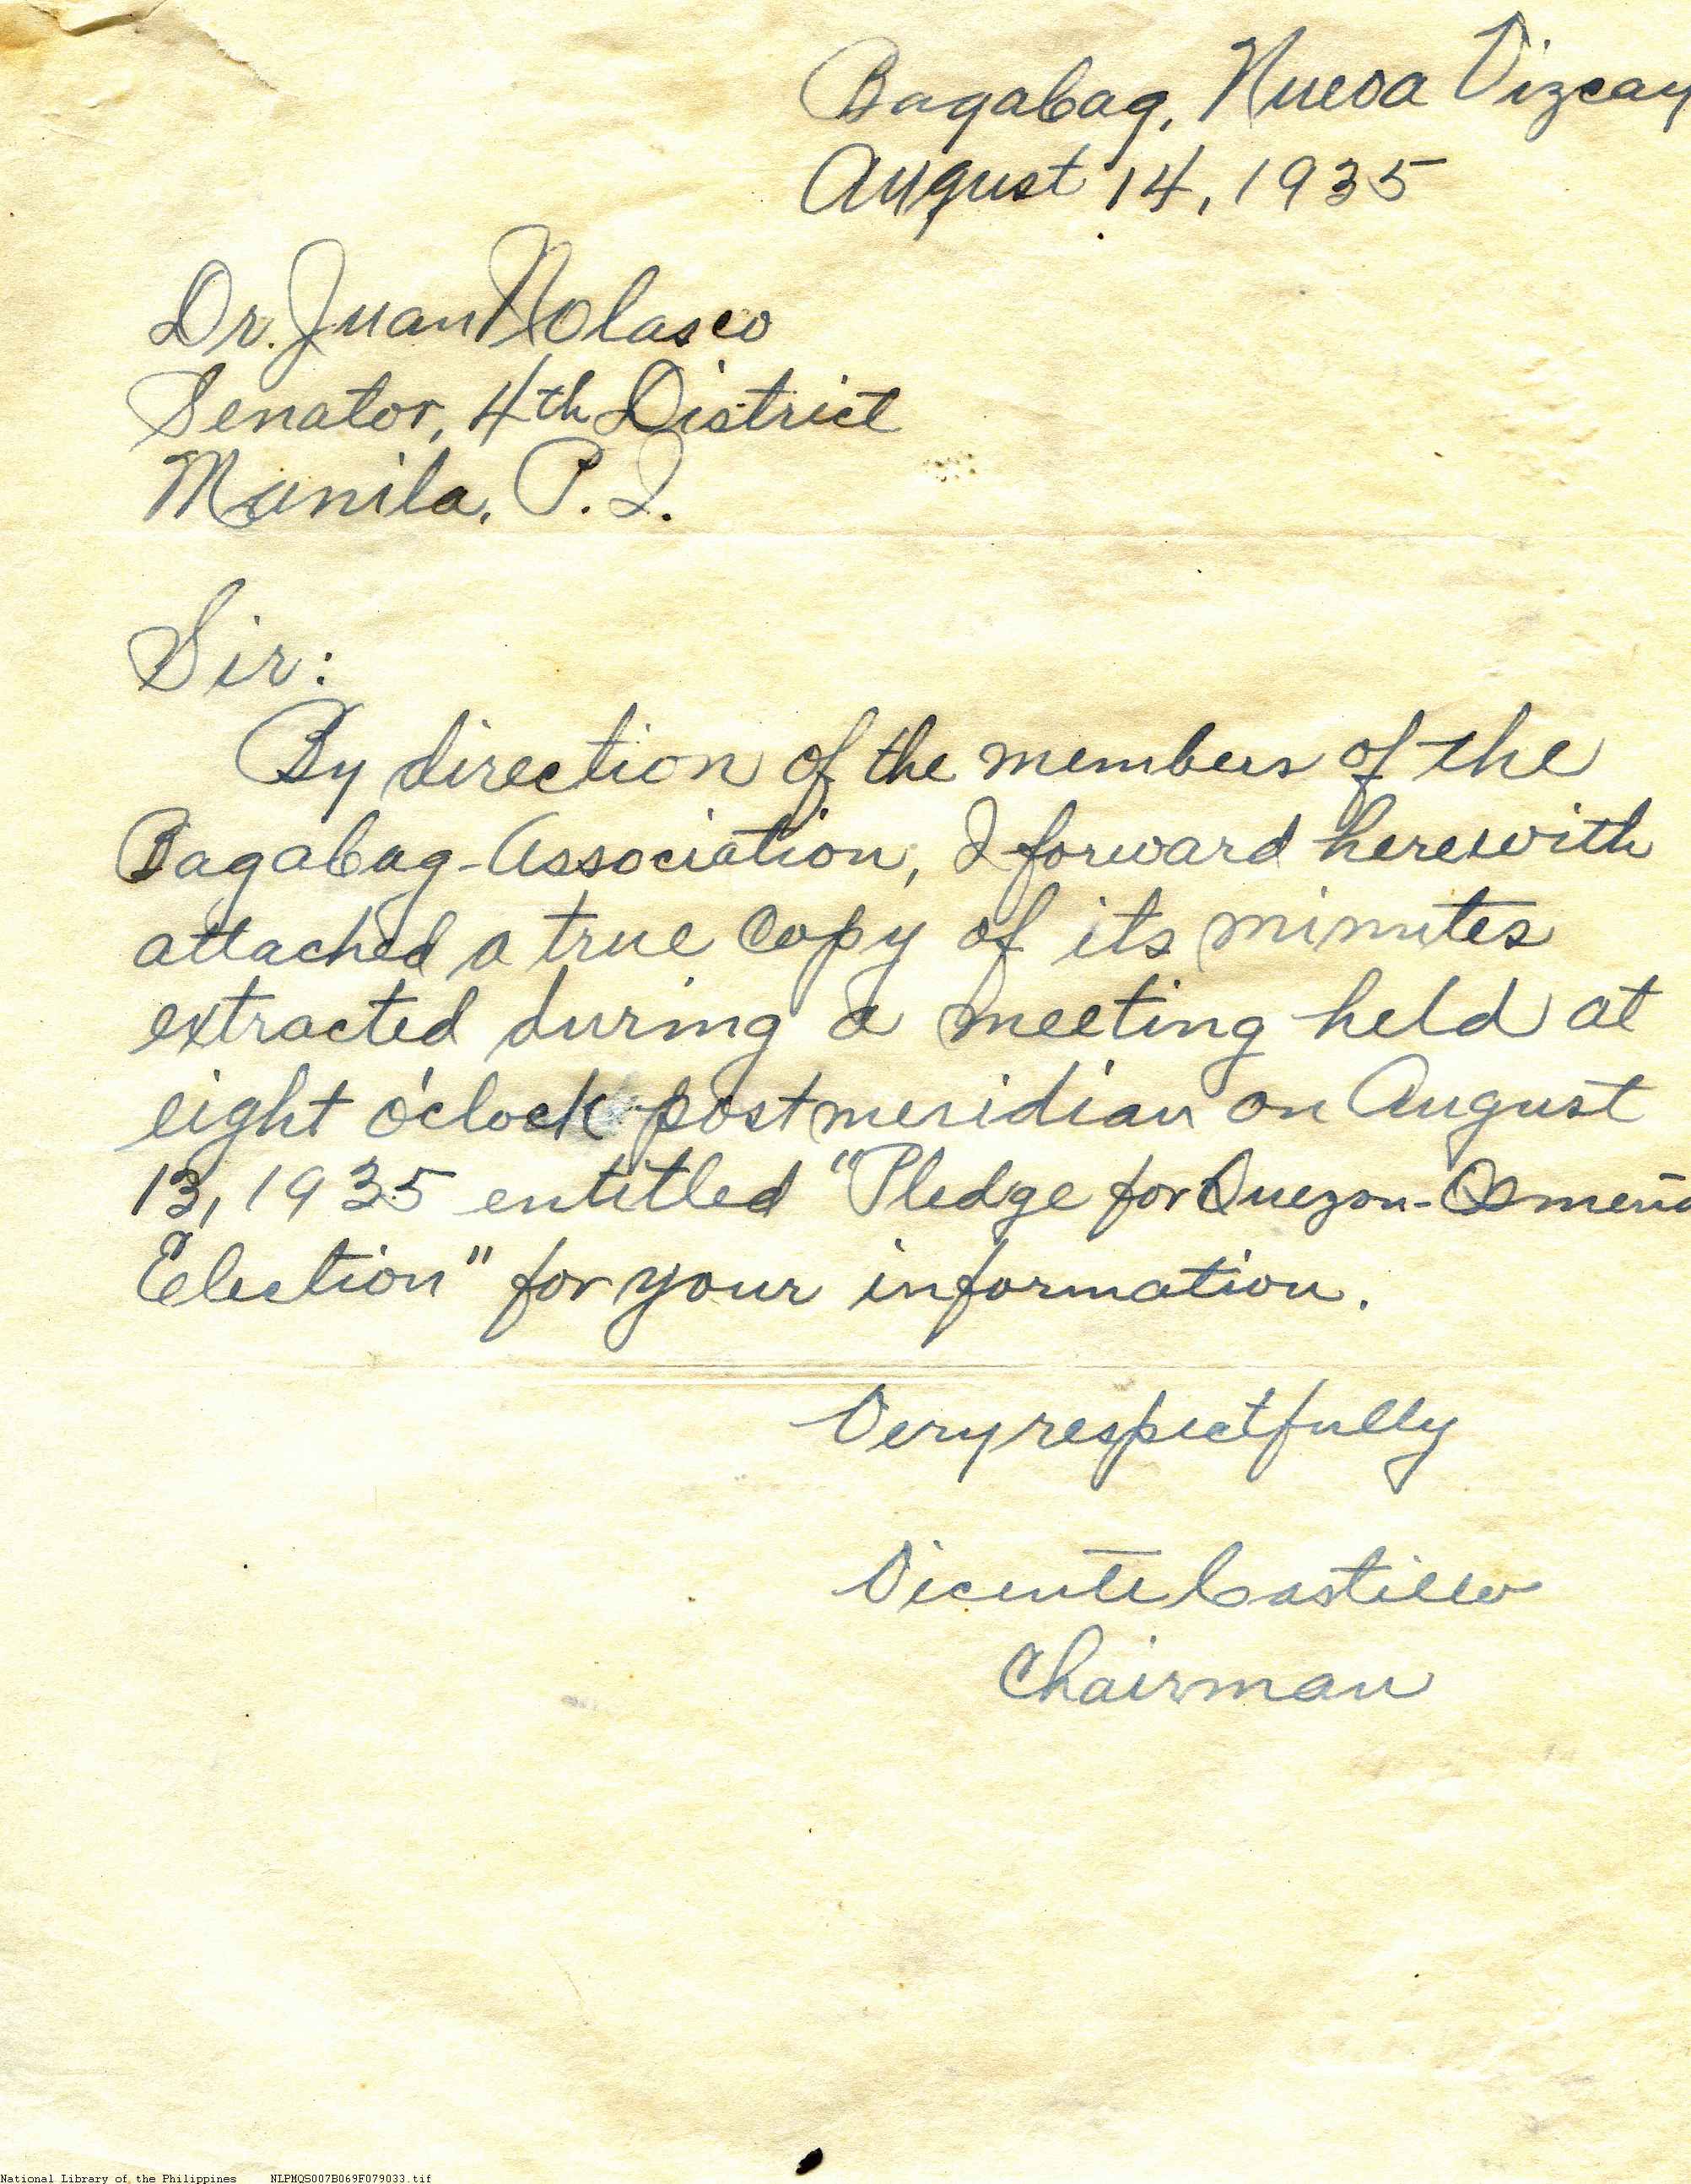 Bagabag, Nueva Vizcay
August 14, 1935
Dr. Juan Nolasco
Senator, 4th District
Manila, P. I.
Sir:
By direction of the members of the
Bagabag-Association, I forward herewith
attached a true copy of its minutes
extracted during a meeting held at
eight o'clock post meridian on August
13, 1935 entitled "Pledge for Quezon-Osmeña
Election" for your information.
Very respectfully
Vicente Castillo
Chairman
National Library of the Philippines NLPMQS007B069F079033.tif